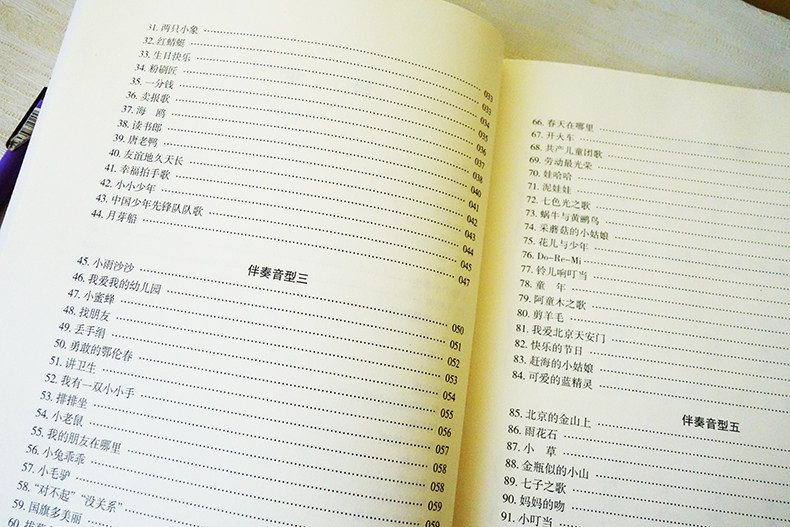 31. 两只小象 033
32. 红蜻蜓 033
33. 生日快乐 034
34. 粉刷匠 035
35. 一分钱 036
36. 卖报歌 037
37. 海 鸥 038
38. 读书郎 040
39. 唐老鸭 041
40. 友谊地久天长 042
41. 幸福拍手歌 043
42. 小小少年 044
43. 中国少年先锋队队歌 045
44. 月芽船 047
伴奏音型三
45. 小雨沙沙 050
46. 我爱我的幼儿园 051
47. 小蜜蜂 052
48. 找朋友 053
49. 丢手绢 054
50. 勇敢的鄂伦春 055
51. 讲卫生 056
52. 我有一双小小手 057
53. 排排坐 058
54. 小老鼠 058
55. 我的朋友在哪里 059
56. 小兔乖乖 059
57. 小毛驴
58. “对不起”“没关系”
59. 国旗多美丽
60.
66. 春天在哪里
67. 开火车
68. 共产儿童团歌
69. 劳动最光荣
70. 娃哈哈
71. 泥娃娃
72. 七色光之歌
73. 蜗牛与黄鹂鸟
74. 采蘑菇的小姑娘
75. 花儿与少年
76. Do-Re-Mi
77. 铃儿响叮当
78. 童 年
79. 阿童木之歌
80. 剪羊毛
81. 我爱北京天安门
82. 快乐的节日
83. 赶海的小姑娘
84. 可爱的蓝精灵
伴奏音型五
85. 北京的金山上
86. 雨花石
87. 小 草
88. 金瓶似的小山
89. 七子之歌
90. 妈妈的吻
91. 小叮当